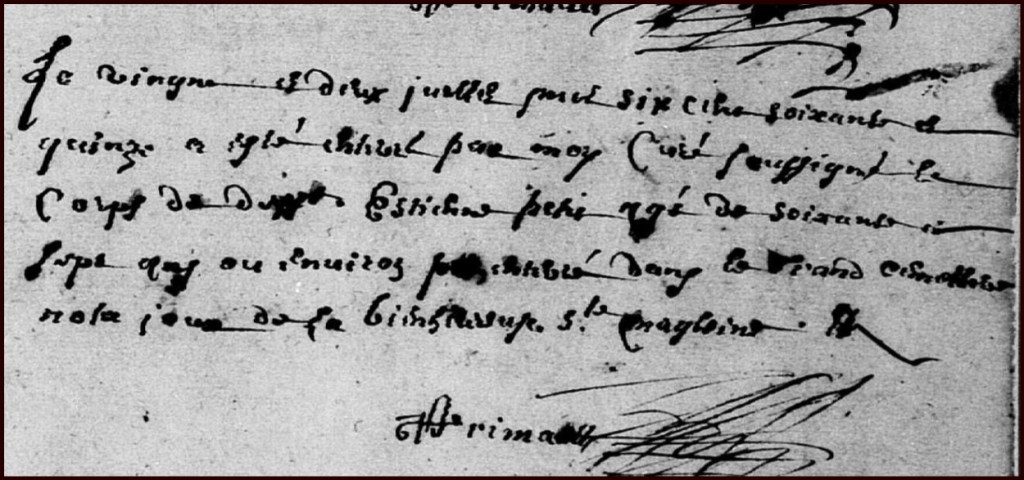 Le vingt et deux juillet mil six cens soixante et
quinze a esté enterré par moy Curé soussigné le
Corps de defft Estienne petit agé de soixante et
sept ans ou environ enterré dans le grand cemettiere
nota jour de la bienheureuse Ste magleine